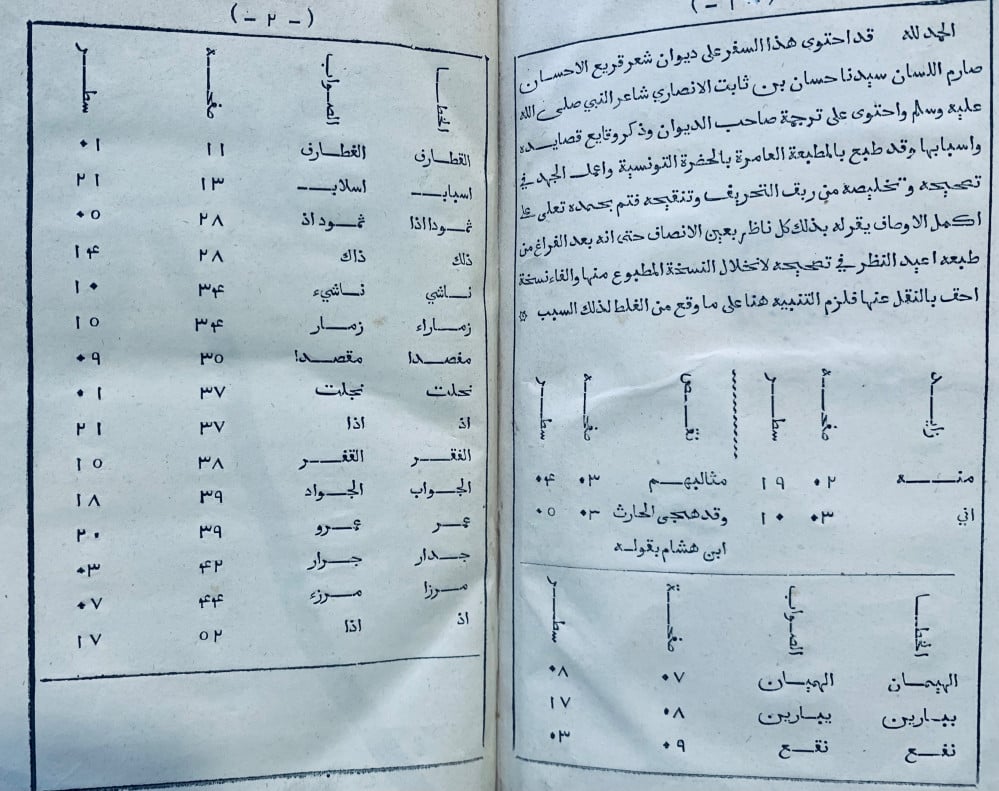 (- ١ -)
الحمد لله قد احتوى هذا السفر على ديوان شعر قريع الاحسان
صارم اللسان سيدنا حسان بن ثابت الانصاري شاعر النبي صلى الله
عليه وسلم واحتوى على ترجمة صاحب الديوان وذكر وقايع قصايده
واسبابها وقد طبع بالمطبعة العامرة بالحضرة التونسية واعمل الجهد في
تصحيحه وتخليصه من ريف التحريف وتنقيحه فتم بحمده تعلى على
اكمل الاوصاف يقر له بذلك كل ناظر بعين الانصاف حتى انه بعد الفراغ من
طبعه اعيد النظر في تصحيحه لاختلال النسخة المطبوع منها والفاء نسخة
احق بالنقل عنها فلزم التنبيه هنا على ما وقع من الغلط لذلك السبب
زايد صفحة سطر نقص صفحة سطر
منه ٠٢ ١٩ مثالبهم ٠٣ ٠٤
اني ٠٣ ١٠ وقد هجى الحارث ٠٣ ٠٥
ابن هشام بقوله
الخطا الصواب صفحة سطر
الهيمان الهميان ٠٧ ٠٨
ببارين يبارين ٠٨ ١٧
نفع نقع ٠٩ ٠٣
(- ٢ -)
الخطا الصواب صفحة سطر
القطارف الغطارف ١١ ٠١
اسباب اسلاب ١٣ ٢١
ثمودا اذا ثمود اذ ٢٨ ٠٥
ذلك ذاك ٢٨ ١٤
ناشي ناشيء ٣٤ ١٠
زماراء زمار ٣٤ ١٥
مقصدا مقصدا ٣٥ ٠٩
نحلت نجلت ٣٧ ٠١
اذ اذا ٣٧ ٢١
الفقر القفر ٣٨ ١٥
الجواب الجواد ٣٩ ١٨
عمر عمرو ٣٩ ٢٠
جدار جرار ٤٢ ٠٣
مرزا مرزء ٤٤ ٠٧
اذ اذا ٥٢ ١٧